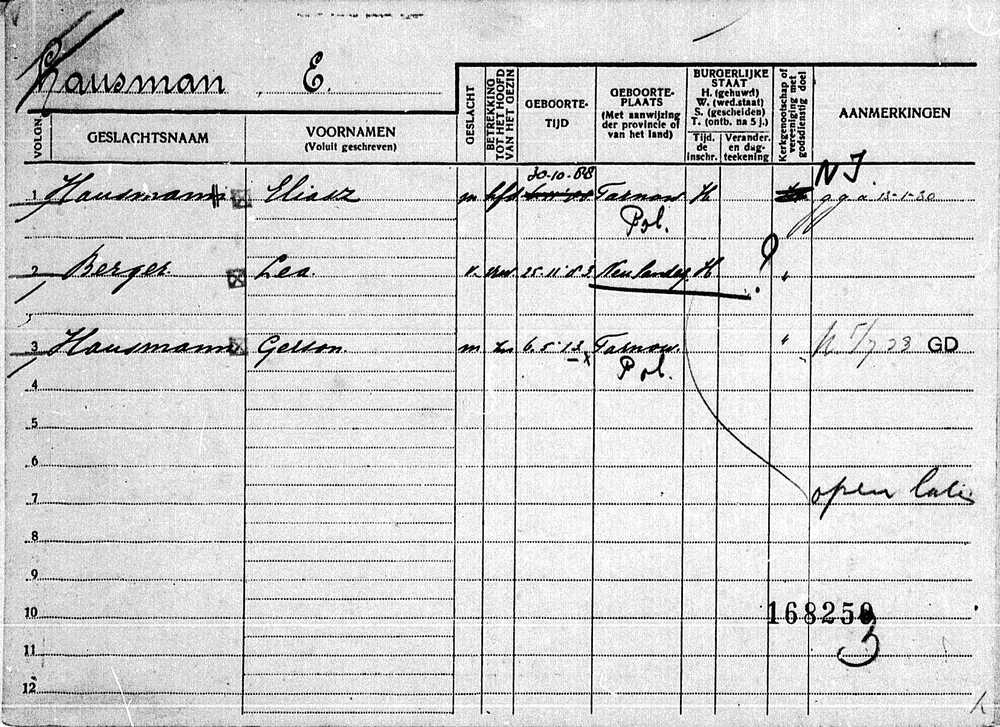 Hausman E.
VOLGN.
GESLACHTSNAAM
VOORNAMEN
(Voluit geschreven)
GESLACHT
BETREKKING TOT HET HOOFD VAN HET GEZIN
GEBOORTE-
TIJD
GEBOORTE-
PLAATS
(Met aanwijzing
der provincie of
van het land)
BURGERLIJKE
STAAT
H. (gehuwd)
W. (wed.staat)
S. (gescheiden)
T. (ontb. na 5 j.)
Tijd.
de
inschr.
Verander.
en dag-
teekening
Kerkgenootschap of
vereeniging met
godsdienstig doel
AANMERKINGEN
20-10-88 N I.
1 Hausmann Eliasz m hfd Tarnow H g g a 13-1-30
Pol.
2 Berger Lea. v. vrw 25.11.83 H ? "
3
3 Hausmann Gerson. m zn 6.5.13 x Tarnow. " 5/7 28 GD
Pol.
4
5
6
7 open laten
8
9
10 168250
3
11
12